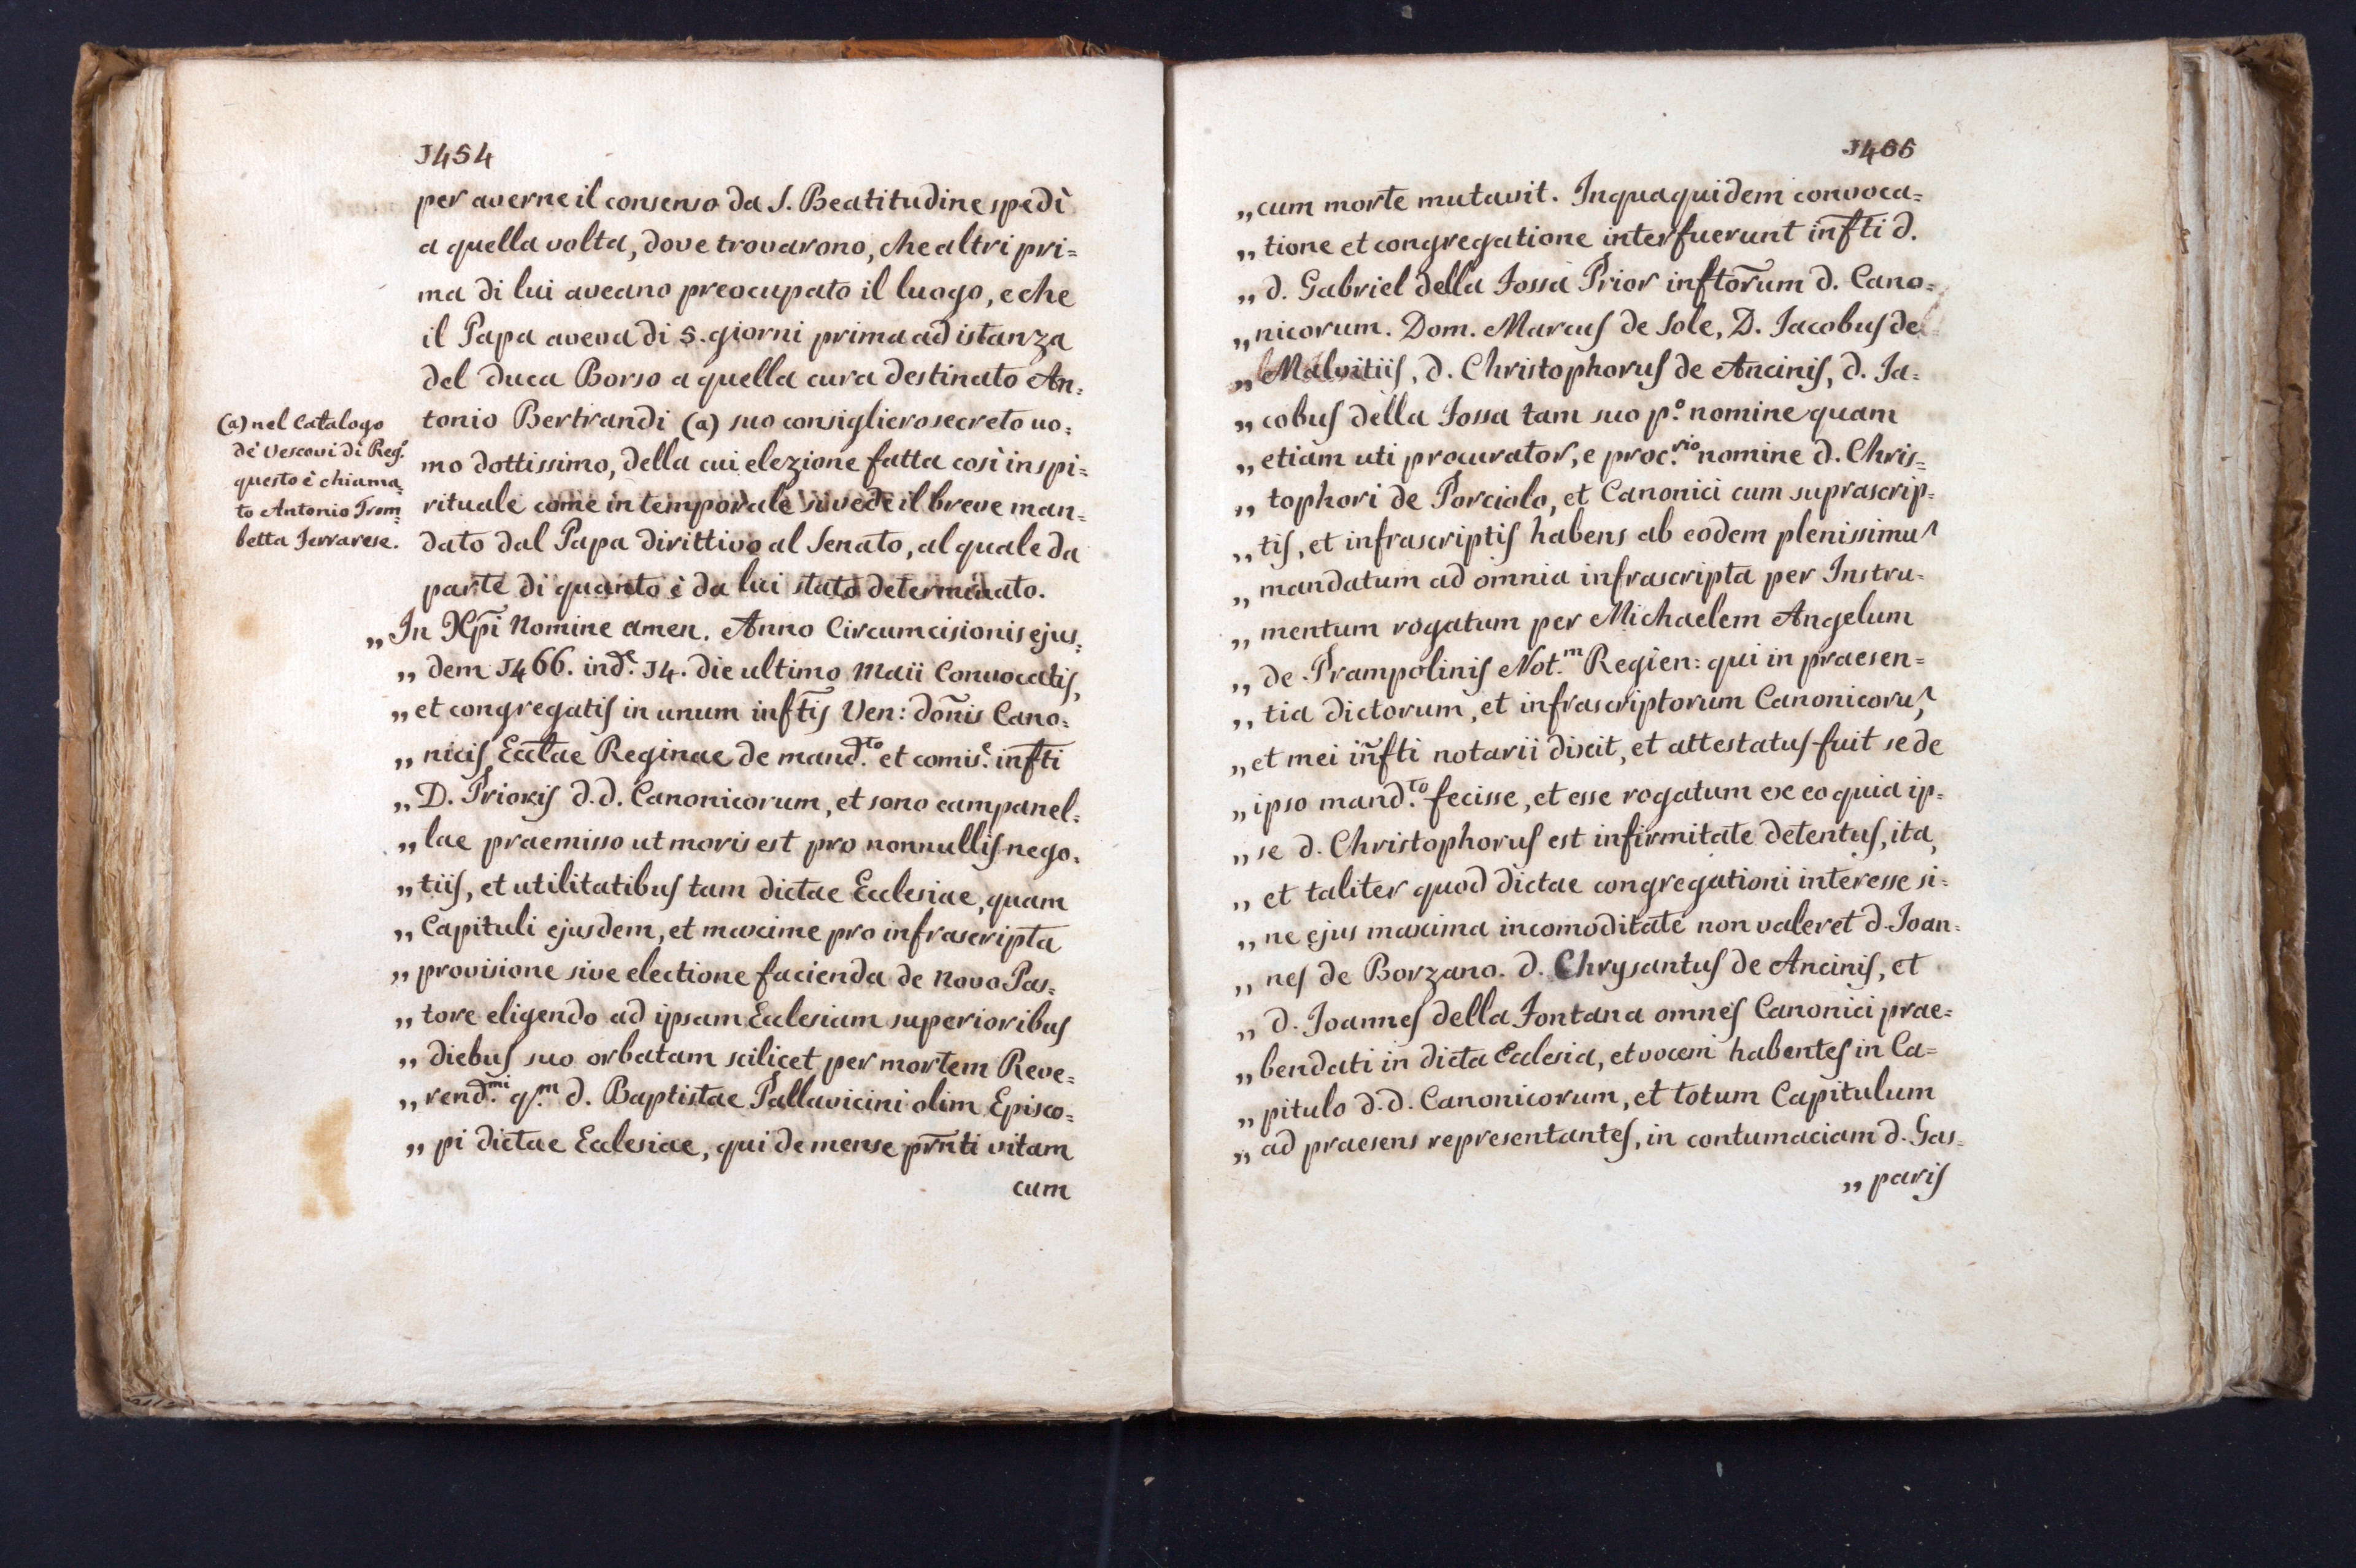 1454
per averne il consenso da S. Beatitudine spedì
a quella volta, dove trovarono, che altri pri=
ma di lui aveano preocupato il luogo, e che
il Papa aveva di 5. giorni prima ad istanza
del duca Borso a quella cura destinato An=
tonio Bertrandi (a) suo consigliero secreto uo=
mo dottissimo, della cui elezione fatta così in spi=
rituale come in temporale si vede il breve man=
dato dal Papa dirittivo al Senato, al quale da
parte di quanto è da lui stato determinato.
(a) nel Catalogo
de' Vescovi di Reg.
questo è chiama=
to Antonio Trom=
betta Ferrarese.
„In Xp̄i Nomine amen. Anno Circumcisionis ejus=
„dem 1466. ind.e 14. die ultimo Maii Convocatis,
„et congregatis in unum inf̄tis Ven: dōnis Cano=
„nicis Ecc̄lae Reginae de mand.to et comis.e inf̄ti
„D. Prioris d.d. Canonicorum, et sono campanel=
„lae praemisso ut moris est pro nonnullis nego=
„tiis, et utilitatibus tam dictae Ecclesiae, quam
„Capituli ejusdem, et maxime pro infrascripta
„provisione sive electione facienda de novo Pas=
„tore eligendo ad ipsam Ecclesiam superioribus
„diebus suo orbatam scilicet per mortem Reve=
„rend.mi q.m d. Baptistae Pallavicini olim Episco=
„pi dictae Ecclesiae, qui de mense prn̄ti vitam
cum
1466
„cum morte mutavit. In qua quidem convoca=
„tione et congregatione interfuerunt inf̄ti d.
„d. Gabriel della Fossa Prior inftōrum d. Cano=
„nicorum. Dom. Marcus de Sole, D. Iacobus de
„Malvitiis, d. Christophorus de Ancinis, d. Ia=
„cobus della Fossa tam suo p.o nomine quam
„etiam uti procurator, e proc.rio nomine d. Chris=
„tophori de Porciolo, et Canonici cum suprascrip=
„tis, et infrascriptis habens ab eodem plenissimu~
„mandatum ad omnia infrascripta per Instru=
„mentum rogatum per Michaelem Angelum
„de Prampolinis Not.m Regien: qui in praesen=
„tia dictorum, et infrascriptorum Canonicoru~,
„et mei iñfti notarii dixit, et attestatus fuit se de
„ipso mand.to fecisse, et esse rogatum ex eo quia ip=
„se d. Christophorus est infirmitate detentus, ita,
„et taliter quod dictae congregationi interesse si=
„ne ejus maxima incomoditate non valeret d. Ioan=
„nes de Borzano. d. Chrysantus de Ancinis, et
„d. Ioannes della Fontana omnes Canonici prae=
„bendati in dicta Ecclesia, et vocem habentes in Ca=
„pitulo d.d. Canonicorum, et totum Capitulum
„ad praesens representantes, in contumaciam d. Gas=
„paris